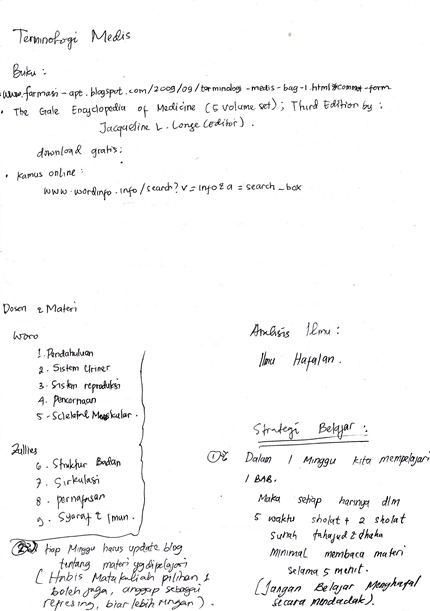 Terminologi Medis
Buku :
www.farmasi-apt.blogspot.com/2009/09/terminologi-medis-bag-1.html#comment-form
• The Gale Encyclopedia of Medicine (5 volume set) ; Third Edition by :
Jacqueline L. Longe (Editor) .
download gratis ;
• Kamus online :
www.wordinfo.info/search?v=info&a=search_box
Dosen & Materi
Woro
1. Pendahuluan
2. Sistem Uriner
3. Sistem reproduksi
4. Pencernaan
5 - Scleletal Muskular .
Zullies
6. Struktur Badan
7. Sirkulasi
8. pernafasan
9. Syaraf & Imun.
tiap Minggu harus update blog
tentang materi yg dipelajari
( Hbis Matakuliah pilihan
boleh juga, anggap sebagai
refresing, biar lebih ringan ) .
Analisis Ilmu :
Ilmu Hafalan .
Strategi Belajar :
① Dalam 1 Minggu kita mempelajari
1 BAB.
Maka setiap harinya dlm
5 waktu sholat + 2 sholat
sunah tahajud & dhuha
minimal membaca materi
selama 5 menit.
(Jangan Belajar Menghafal
secara mendadak)